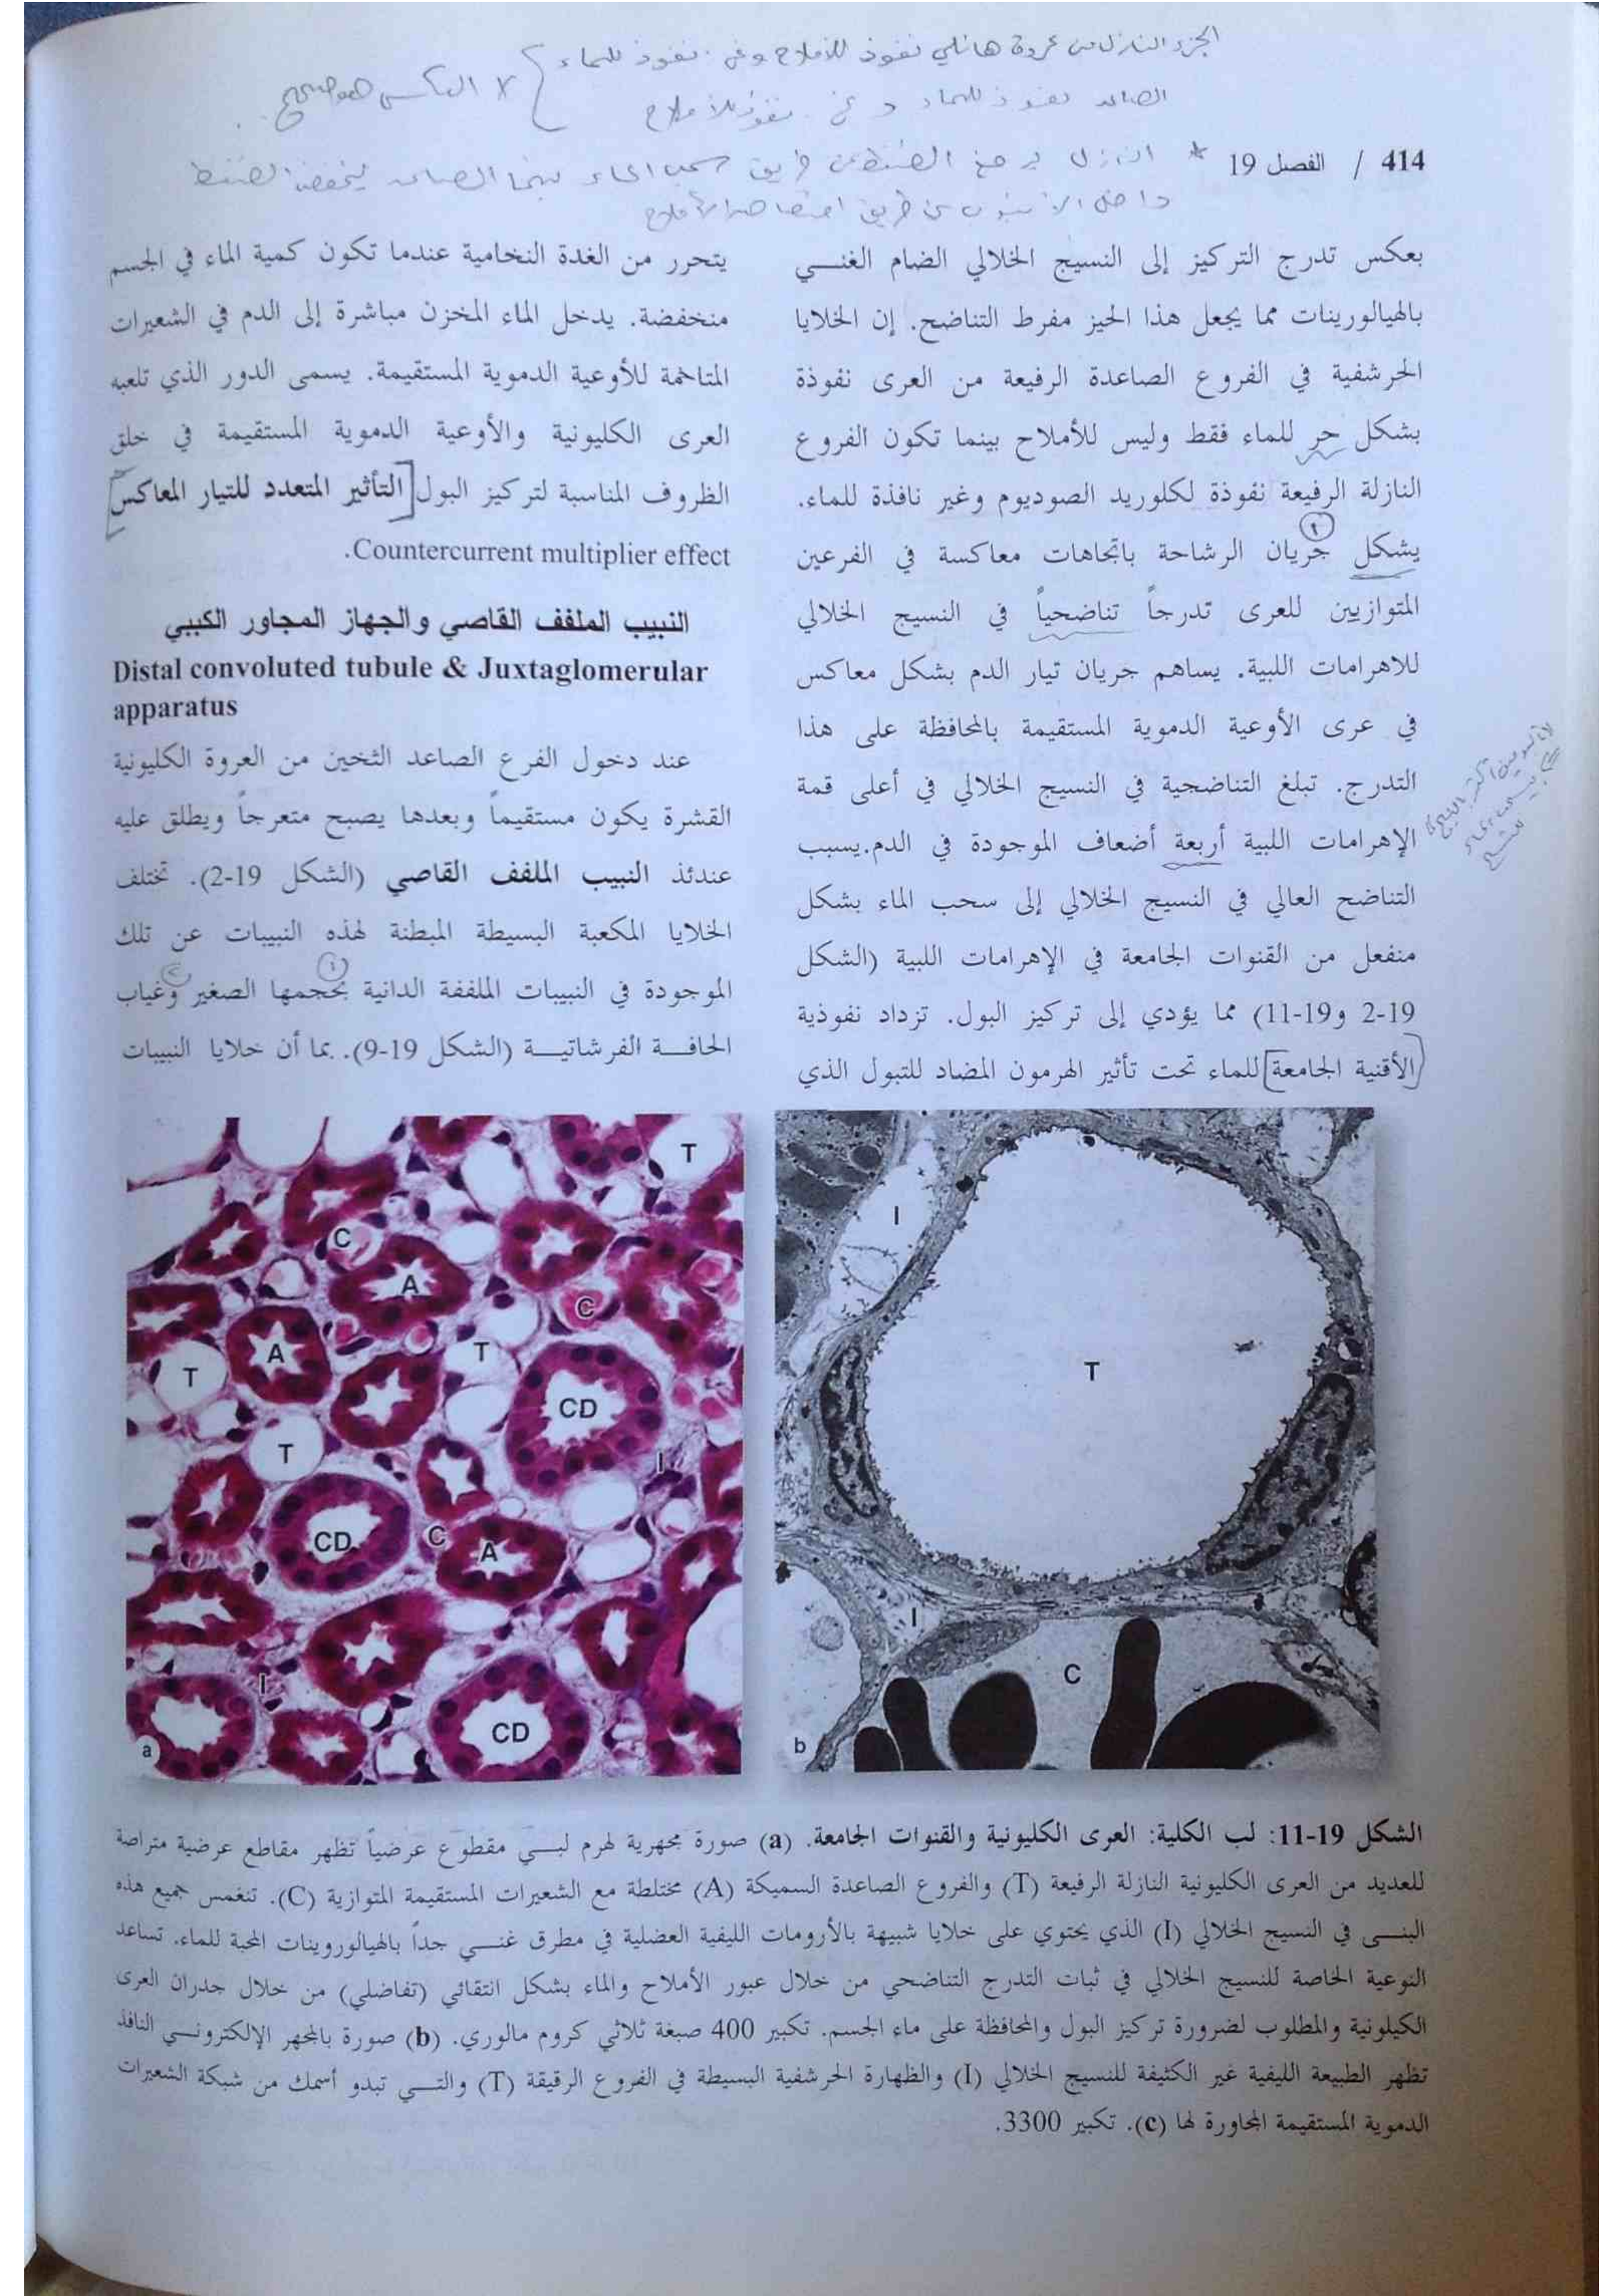 الجزء النازل من عروة هانلي نفوذ للأملاح وغير نفوذ للماء
الصاعد نفوذ للماء وغير نفوذ للأملاح
لا العكس هو صحيح
414 / الفصل 19
* النازل يرفع الضغط عن طريق سحب الماء بينما الصاعد يخفض الضغط
داخل الأنبوب عن طريق امتصاص الأملاح
بعكس تدرج التركيز إلى النسيج الخلالي الضام الغني
بالهيالورينات مما يجعل هذا الحيز مفرط التناضح. إن الخلايا
الحرشفية في الفروع الصاعدة الرفيعة من العرى نفوذة
بشكل حر للماء فقط وليس للأملاح بينما تكون الفروع
النازلة الرفيعة نفوذة لكلوريد الصوديوم وغير نافذة للماء.
يشكل جريان الرشاحة باتجاهات معاكسة في الفرعين
المتوازيين للعرى تدرجاً تناضحياً في النسيج الخلالي
للاهرامات اللبية. يساهم جريان تيار الدم بشكل معاكس
في عرى الأوعية الدموية المستقيمة بالمحافظة على هذا
التدرج. تبلغ التناضحية في النسيج الخلالي في أعلى قمة
الإهرامات اللبية أربعة أضعاف الموجودة في الدم.يسبب
التناضح العالي في النسيج الخلالي إلى سحب الماء بشكل
منفعل من القنوات الجامعة في الإهرامات اللبية (الشكل
19-2 و19-11) مما يؤدي إلى تركيز البول. تزداد نفوذية
الأقنية الجامعة للماء تحت تأثير الهرمون المضاد للتبول الذي
يتحرر من الغدة النخامية عندما تكون كمية الماء في الجسم
منخفضة. يدخل الماء المخزن مباشرة إلى الدم في الشعيرات
المتاخمة للأوعية الدموية المستقيمة. يسمى الدور الذي تلعبه
العرى الكليونية والأوعية الدموية المستقيمة في خلق
الظروف المناسبة لتركيز البول التأثير المتعدد للتيار المعاكس
Countercurrent multiplier effect.
النبيب الملفف القاصي والجهاز المجاور الكببي
Distal convoluted tubule & Juxtaglomerular
apparatus
عند دخول الفرع الصاعد الثخين من العروة الكليونية
القشرة يكون مستقيماً وبعدها يصبح متعرجاً ويطلق عليه
عندئذ النبيب الملفف القاصي (الشكل 19-2). تختلف
الخلايا المكعبة البسيطة المبطنة لهذه النبيبات عن تلك
الموجودة في النبيبات الملففة الدانية بحجمها الصغير وغياب
الحافـــة الفرشاتيـــة (الشكل 19-9). بما أن خلايا النبيبات
T
C
A
C
A
T
T
CD
T
I
CD
C
A
I
CD
a
I
T
I
C
b
الشكل 19-11: لب الكلية: العرى الكليونية والقنوات الجامعة. (a) صورة مجهرية لهرم لبــي مقطوع عرضياً تظهر مقاطع عرضية متراصة
للعديد من العرى الكليونية النازلة الرفيعة (T) والفروع الصاعدة السميكة (A) مختلطة مع الشعيرات المستقيمة المتوازية (C). تنغمس جميع هذه
البنــى في النسيج الخلالي (I) الذي يحتوي على خلايا شبيهة بالأرومات الليفية العضلية في مطرق غنــي جداً بالهيالوروينات المحبة للماء. تساعد
النوعية الخاصة للنسيج الخلالي في ثبات التدرج التناضحي من خلال عبور الأملاح والماء بشكل انتقائي (تفاضلي) من خلال جدران العرى
الكيلونية والمطلوب لضرورة تركيز البول والمحافظة على ماء الجسم. تكبير 400 صبغة ثلاثي كروم مالوري. (b) صورة بالمجهر الإلكترونــي النافذ
تظهر الطبيعة الليفية غير الكثيفة للنسيج الخلالي (I) والظهارة الحرشفية البسيطة في الفروع الرقيقة (T) والتــي تبدو أسمك من شبكة الشعيرات
الدموية المستقيمة المجاورة لها (c). تكبير 3300.